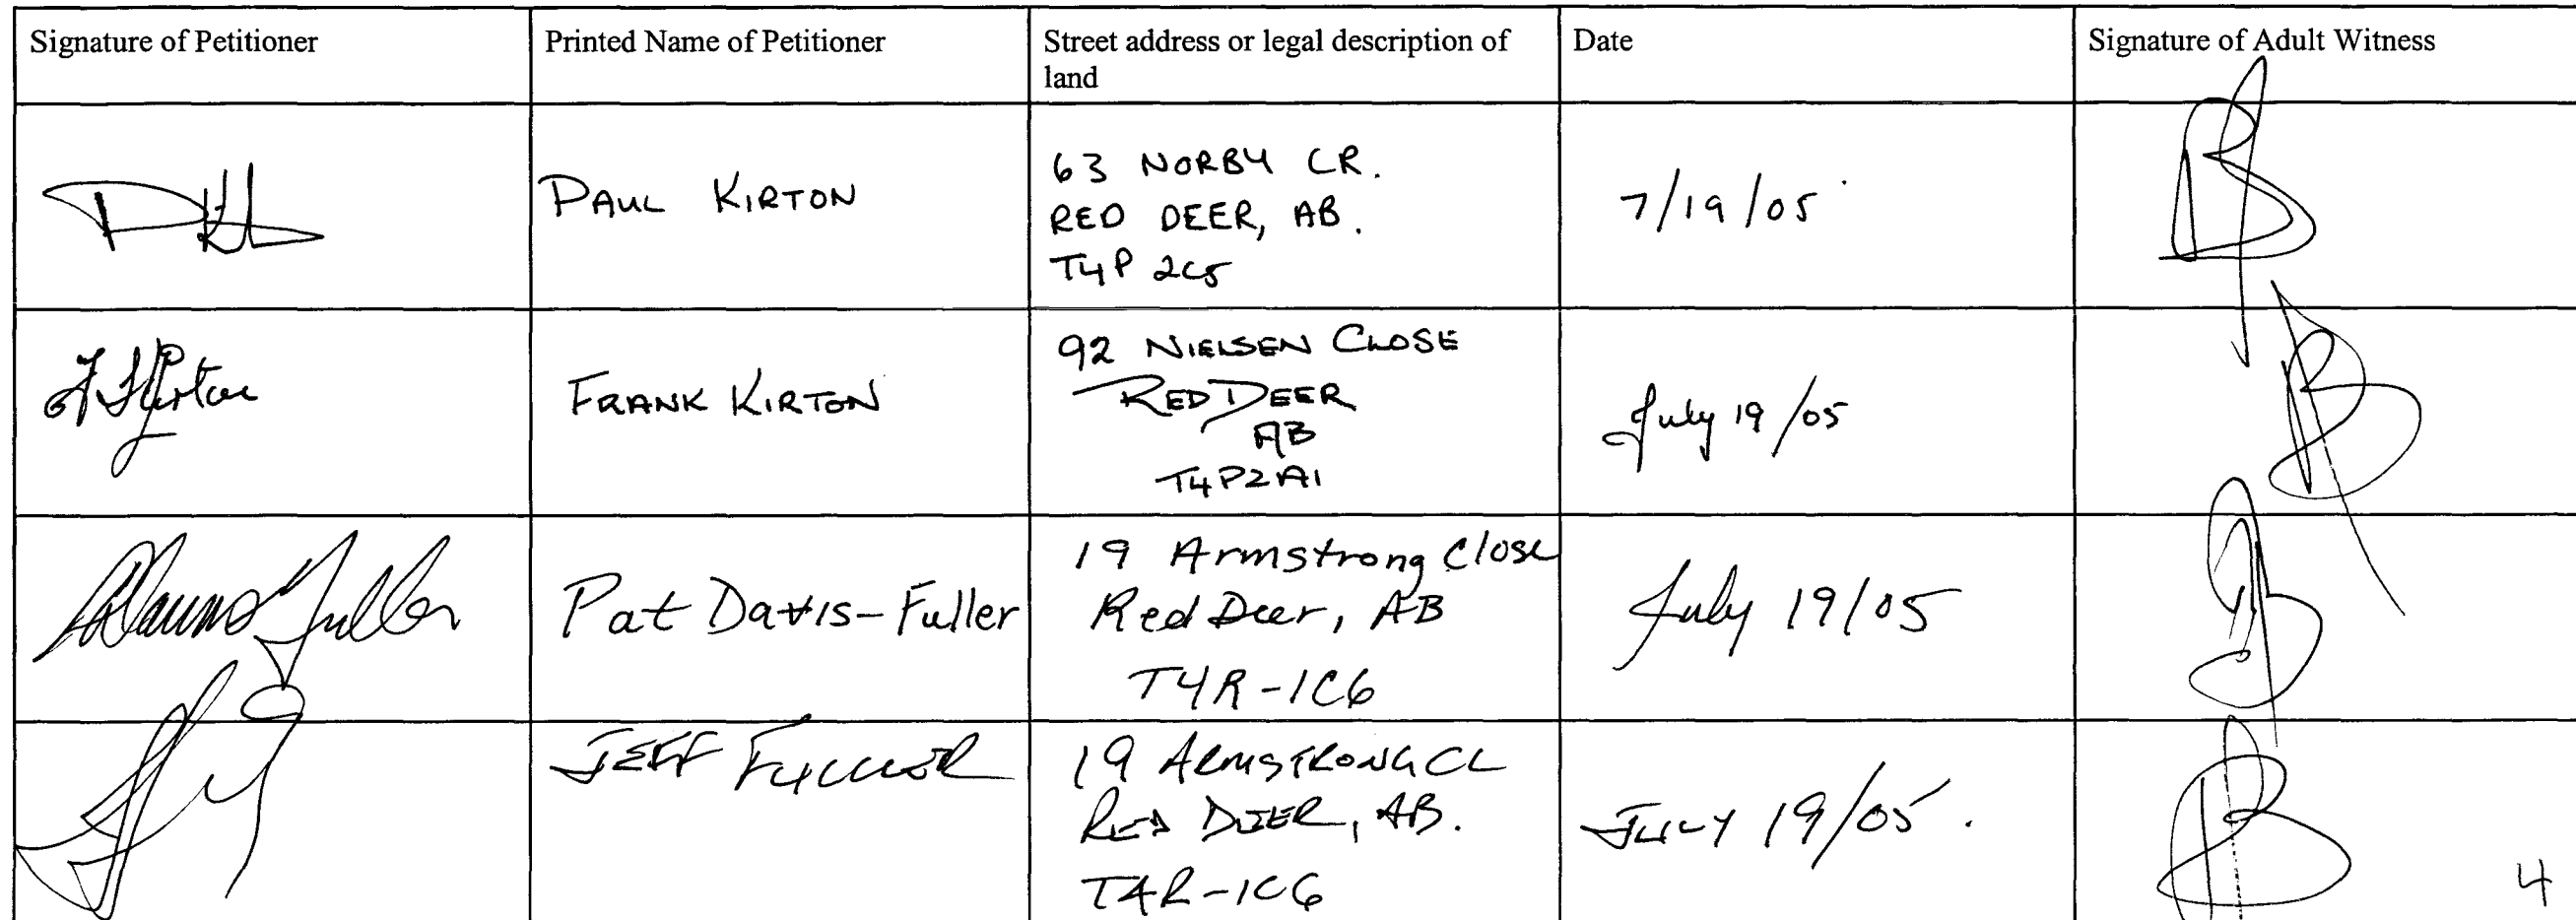 Signature of Petitioner
Printed Name of Petitioner
Street address or legal description of
land
Date
Signature of Adult Witness
PAUL KIRTON
63 NORBY CR.
RED DEER, AB.
T4P 2C5
7/19/05
FRANK KIRTON
92 NIELSEN CLOSE
RED DEER
AB
T4P2A1
July 19/05
Pat Davis-Fuller
19 Armstrong Close
Red Deer, AB
T4R-1C6
July 19/05
JEFF FULLER
19 ARMSTRONG CL
RED DEER, AB.
T4R-1C6
JULY 19/05.
4